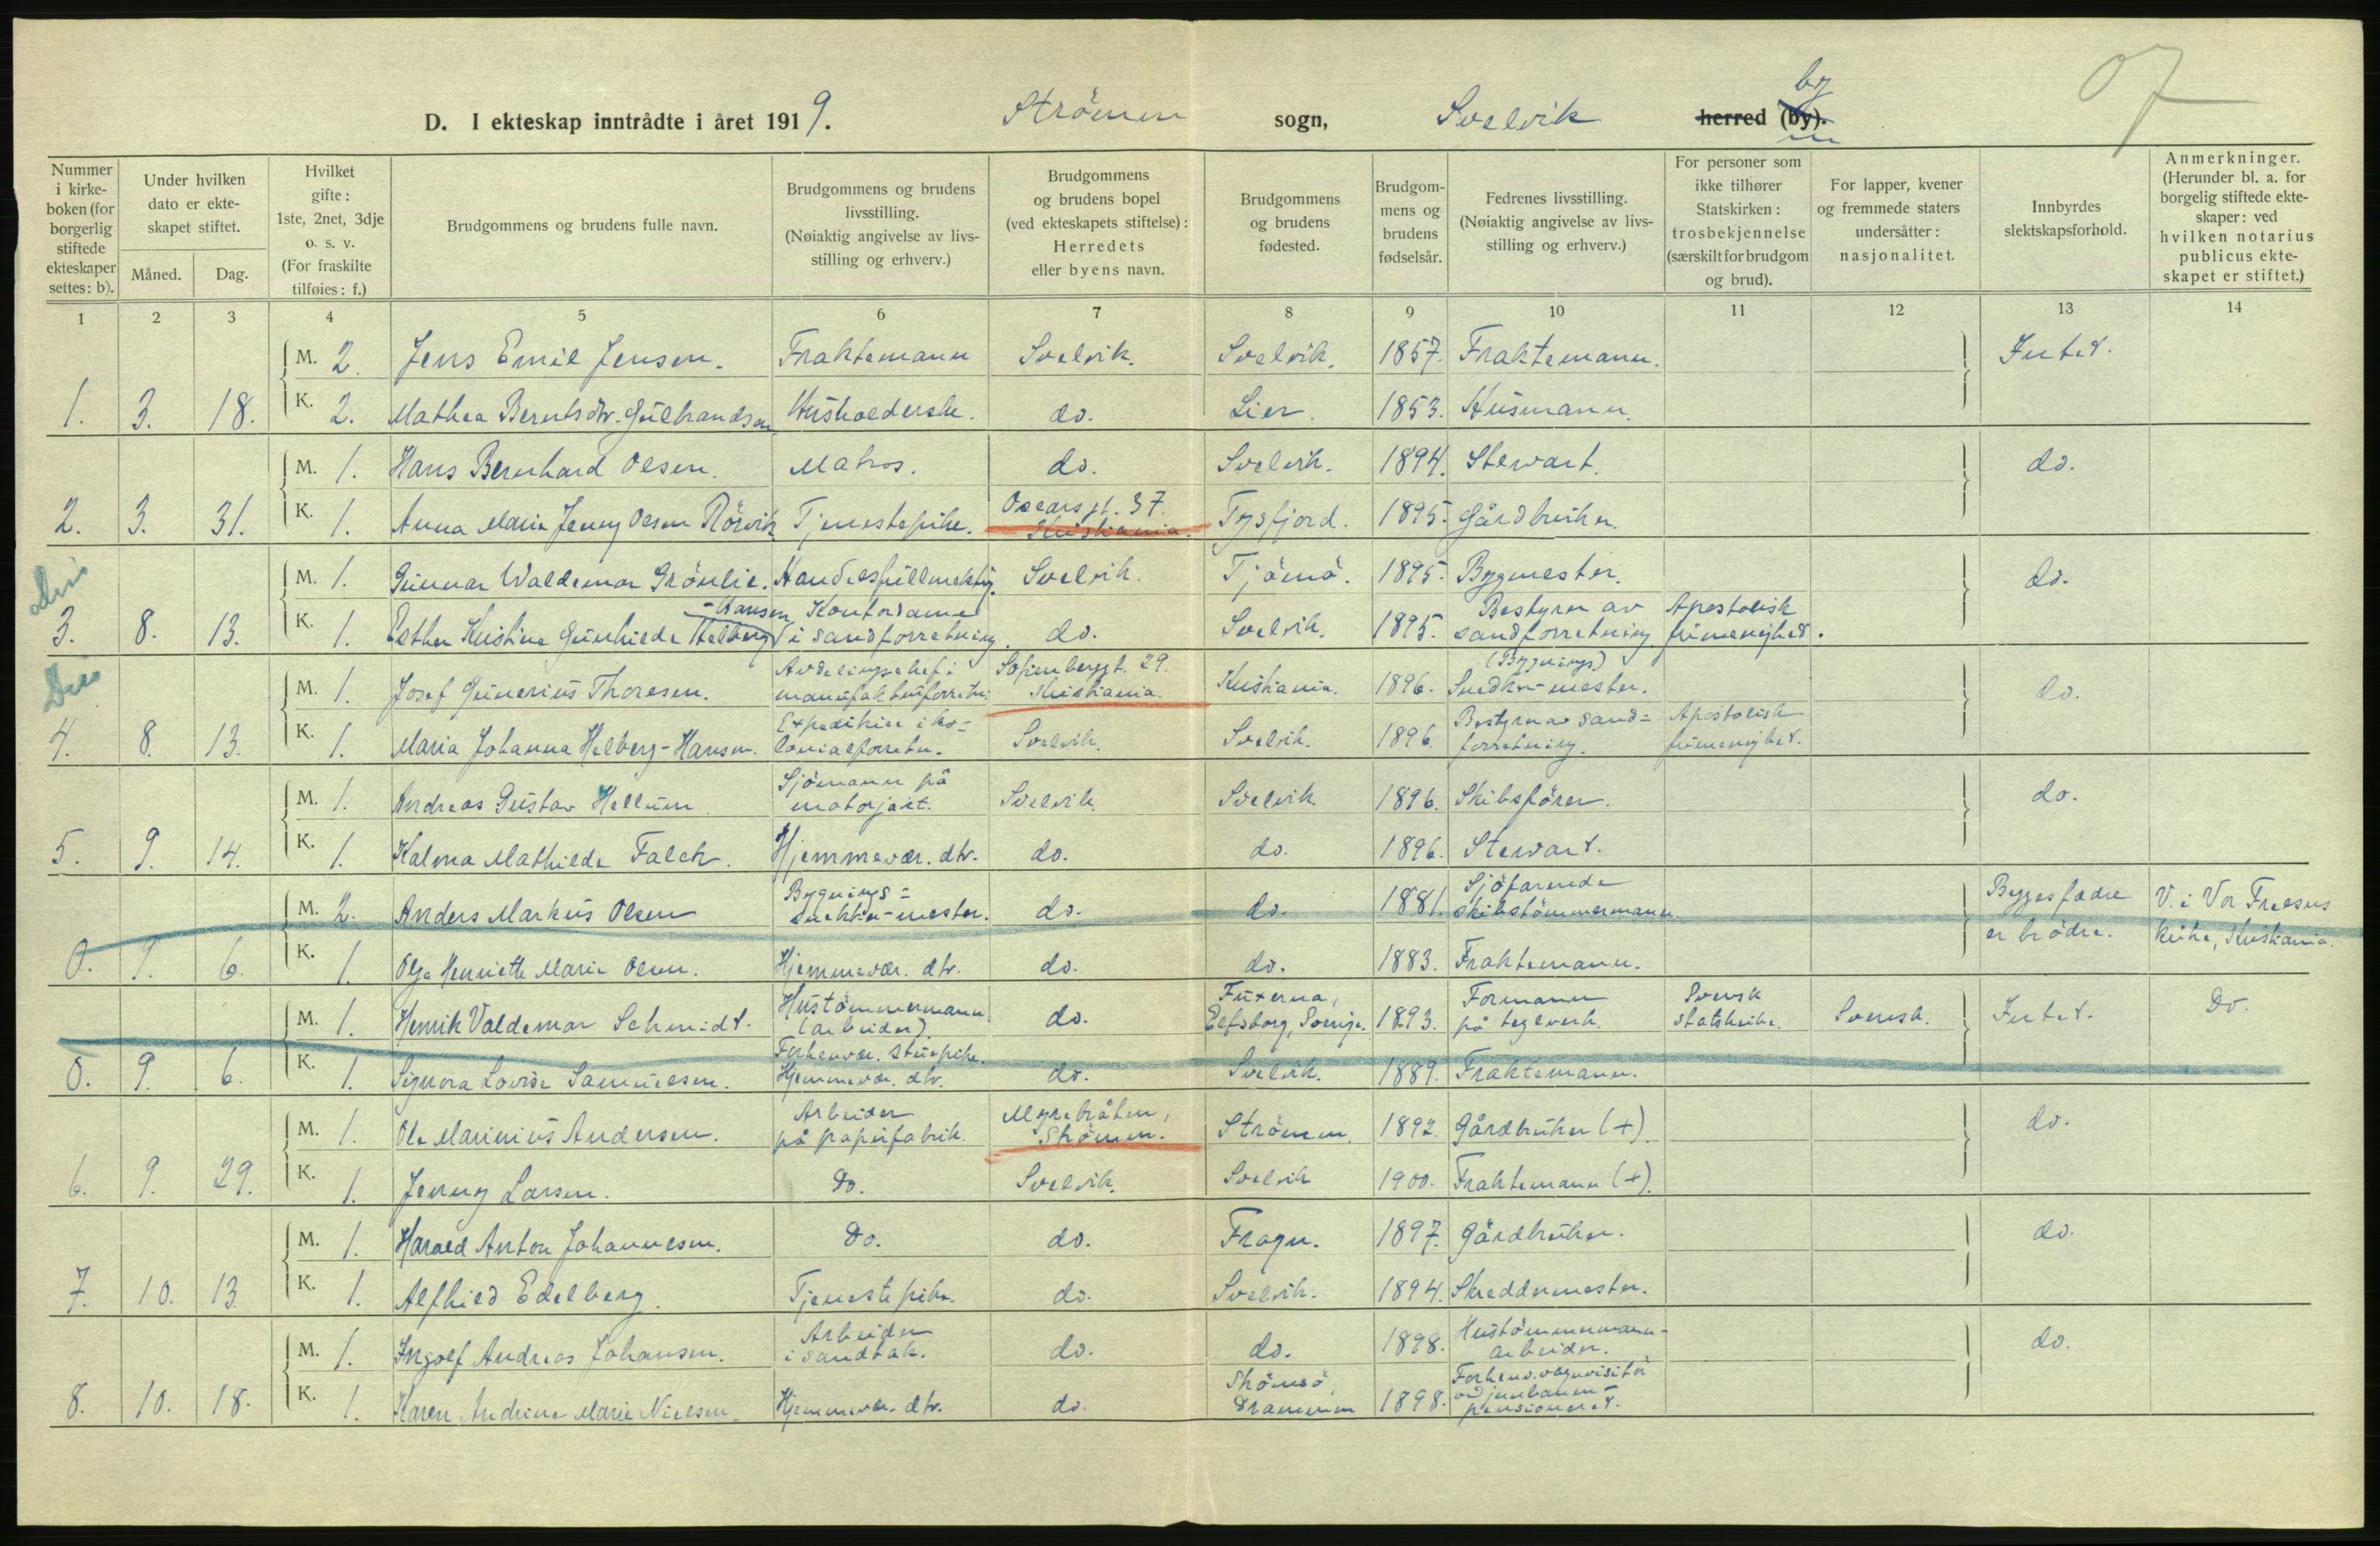 07
D. I ekteskap inntrådte i året 1919. Strömm sogn, Svelvik herred (by). by
Nummer i kirkeboken (for borgerlig stiftede ekteskaper settes: b).
Under hvilken dato er ekteskapet stiftet.
Måned. Dag.
Hvilket gifte: 1ste, 2net, 3dje o. s. v. (For fraskilte tilføies: f.)
Brudgommens og brudens fulle navn.
Brudgommens og brudens livsstilling. (Nøiaktig angivelse av livsstilling og erhverv.)
Brudgommens og brudens bopel (ved ekteskapets stiftelse): Herredets eller byens navn.
Brudgommens og brudens fødested.
Brudgommens og brudens fødselsår.
Fedrenes livsstilling. (Nøiaktig angivelse av livsstilling og erhverv.)
For personer som ikke tilhører Statskirken: trosbekjennelse (særskilt for brudgom og brud).
For lapper, kvener og fremmede staters undersåtter: nasjonalitet.
Innbyrdes slektskapsforhold.
Anmerkninger. (Herunder bl. a. for borgelig stiftede ekteskaper: ved hvilken notarius publicus ekteskapet er stiftet.)
1 2 3 4 5 6 7 8 9 10 11 12 13 14
M. 2. Jens Emil Jensen. Fraktemann Svelvik. Svelvik. 1857. Fraktemann. Intet.
1. 3. 18. K. 2. Mathea Berntsdtr. Gulbrandsen Husholderske. do. Lier. 1853. Husmann.
M. 1. Hans Bernhard Olsen. Matros. do. Svelvik. 1894. Stewart. do.
2. 3. 31. K. 1. Anna Marie Jenny Olsen Rörvik Tjenestepike. Oscarsgt. 37. Kristiania. Tysfjord. 1895. Gårdbruker.
M. 1. Gunnar Waldemar Grönlie. Handelsfullmektig. Svelvik. Tjömö. 1895. Bygmester. do.
3. 8. 13. K. 1. Esther Kristine Gunhilde Helberg-Hansen Kontordame i sandforretning. do. Svelvik. 1895. Bestyrer av sandforretning Apostolisk frimenighet.
M. 1. Josef Gunerius Thoresen. Avdelingschef i manufakturforretn. Sofienberggt. 29. Kristiania. Kristiania. 1896. (Bygnings) Snedker-mester. do.
4. 8. 13. K. 1. Maria Johanna Helberg-Hansen. Expeditrice i kolonialforretn. Svelvik. Svelvik. 1896. Bestyrer av sandforretning. Apostolisk frimenighet.
M. 1. Andreas Gustav Hellum. Sjömann på motorjakt. Svelvik. Svelvik. 1896. Skibsförer. do.
5. 9. 14. K. 1. Kalma Mathilde Falck. Hjemmevær. dtr. do. do. 1896. Stewart.
M. 2. Anders Markus Olsen Bygnings-snekker-mester. do. do. 1881. Sjöfarende skibstömmermann Begges fædre er brödre. V. i Vor Frelsers kirke, Kristiania.
0. 9. 6. K. 1. Olga Henriette Marie Olsen. Hjemmevær. dtr. do. do. 1883. Fraktemann.
M. 1. Henrik Valdemar Schmidt. Hustömmermann (arbeider) do. Fuxerna, Elfsborg, Sverige. 1893. Formann på teglverk. Svensk statskirke. Svensk. Intet. Do.
0. 9. 6. K. 1. Signora Lovise Samuelsen. Forhenvær. stuepike. Hjemmevær. dtr. do. Svelvik. 1889. Fraktemann.
M. 1. Ole Marinius Andersen. Arbeider på papirfabrik. Myrebråten, Strömm. Strömm. 1892. Gårdbruker (+). do.
6. 9. 29. K. 1. Jenny Larsen. Do. Svelvik. Svelvik 1900. Fraktemann (+).
M. 1. Harald Anton Johannesen. Do. do. Frogn. 1897. Gårdbruker. do.
7. 10. 13. K. 1. Alfhild Edelberg. Tjenestepike. do. Svelvik. 1894. Skreddermester.
M. 1. Ingolf Andreas Johansen. Arbeider i sandtak. do. do. 1898. Hustömmermann-arbeider. do.
8. 10. 18. K. 1. Karen Andrine Marie Nielsen. Hjemmevær. dtr. do. Strömsö, Drammen 1898. Forhenv. vognvisitör ved jernbanen - pensioneret.